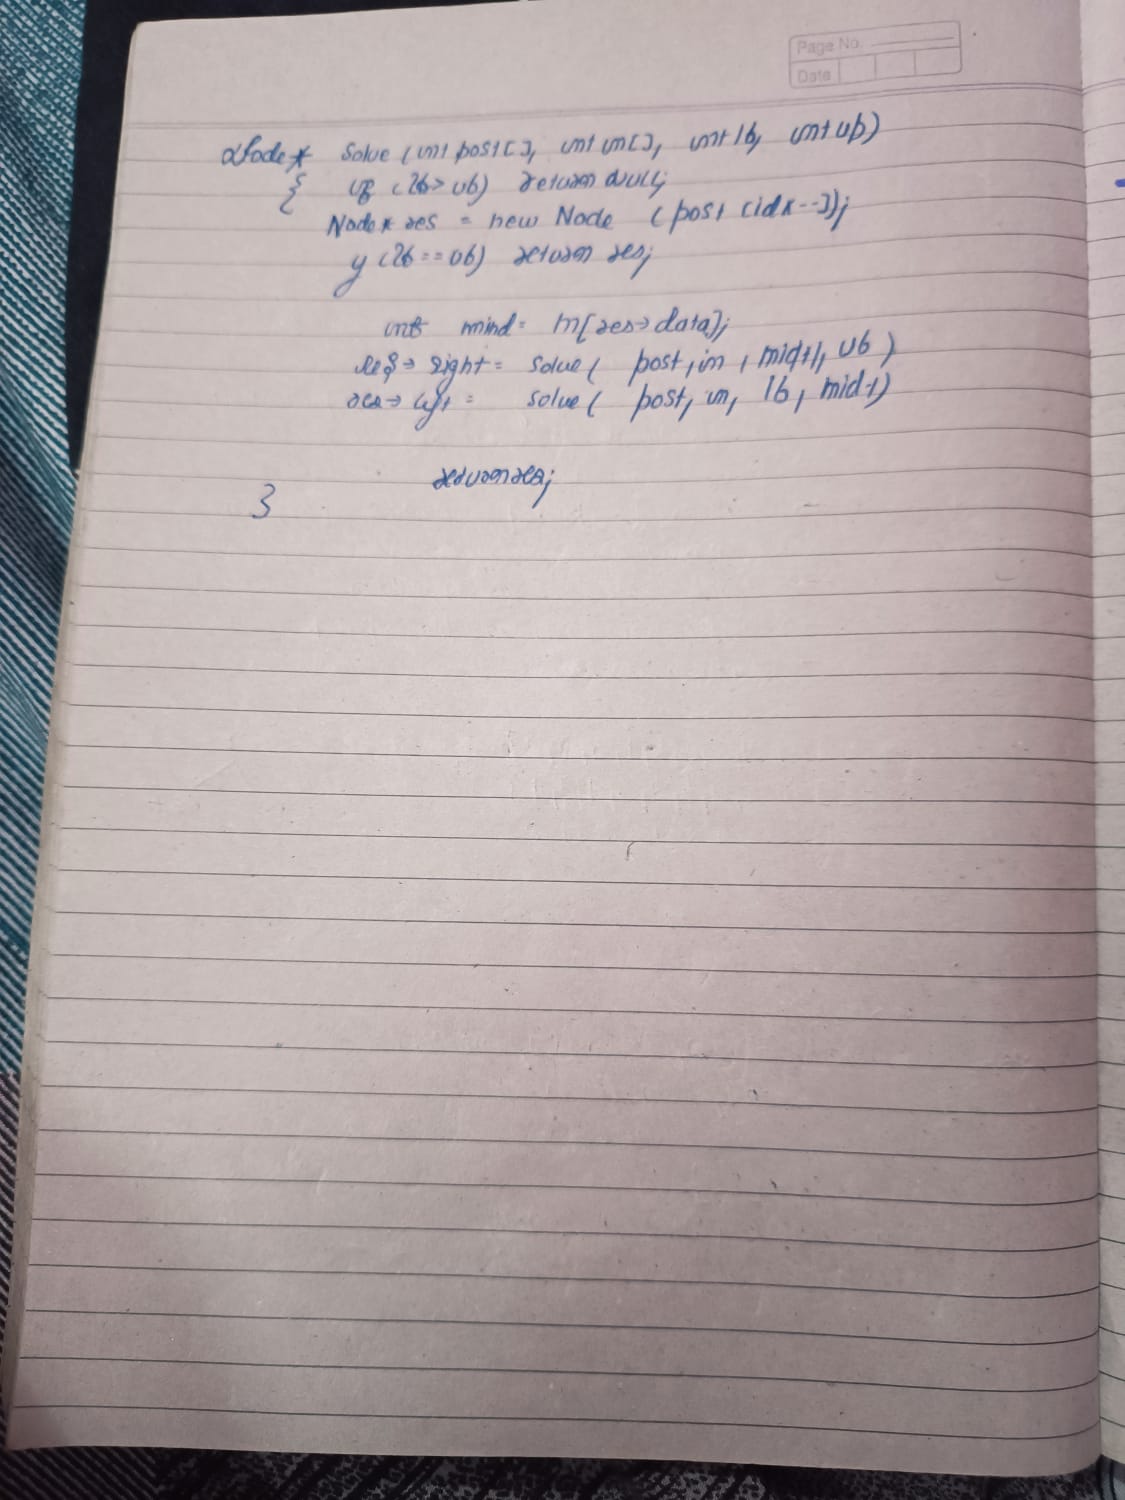 Page No.
Date
Node* solve (int post[], int in[], int lb, int ub)
{ if (lb > ub) return Null;
Node* res = new Node (post [idx--]);
if (lb == ub) return res;
int mind = m[res->data];
res-> right = solve ( post, in, mid+1, ub )
res-> left = solve ( post, in, lb, mid-1)
return res;
}